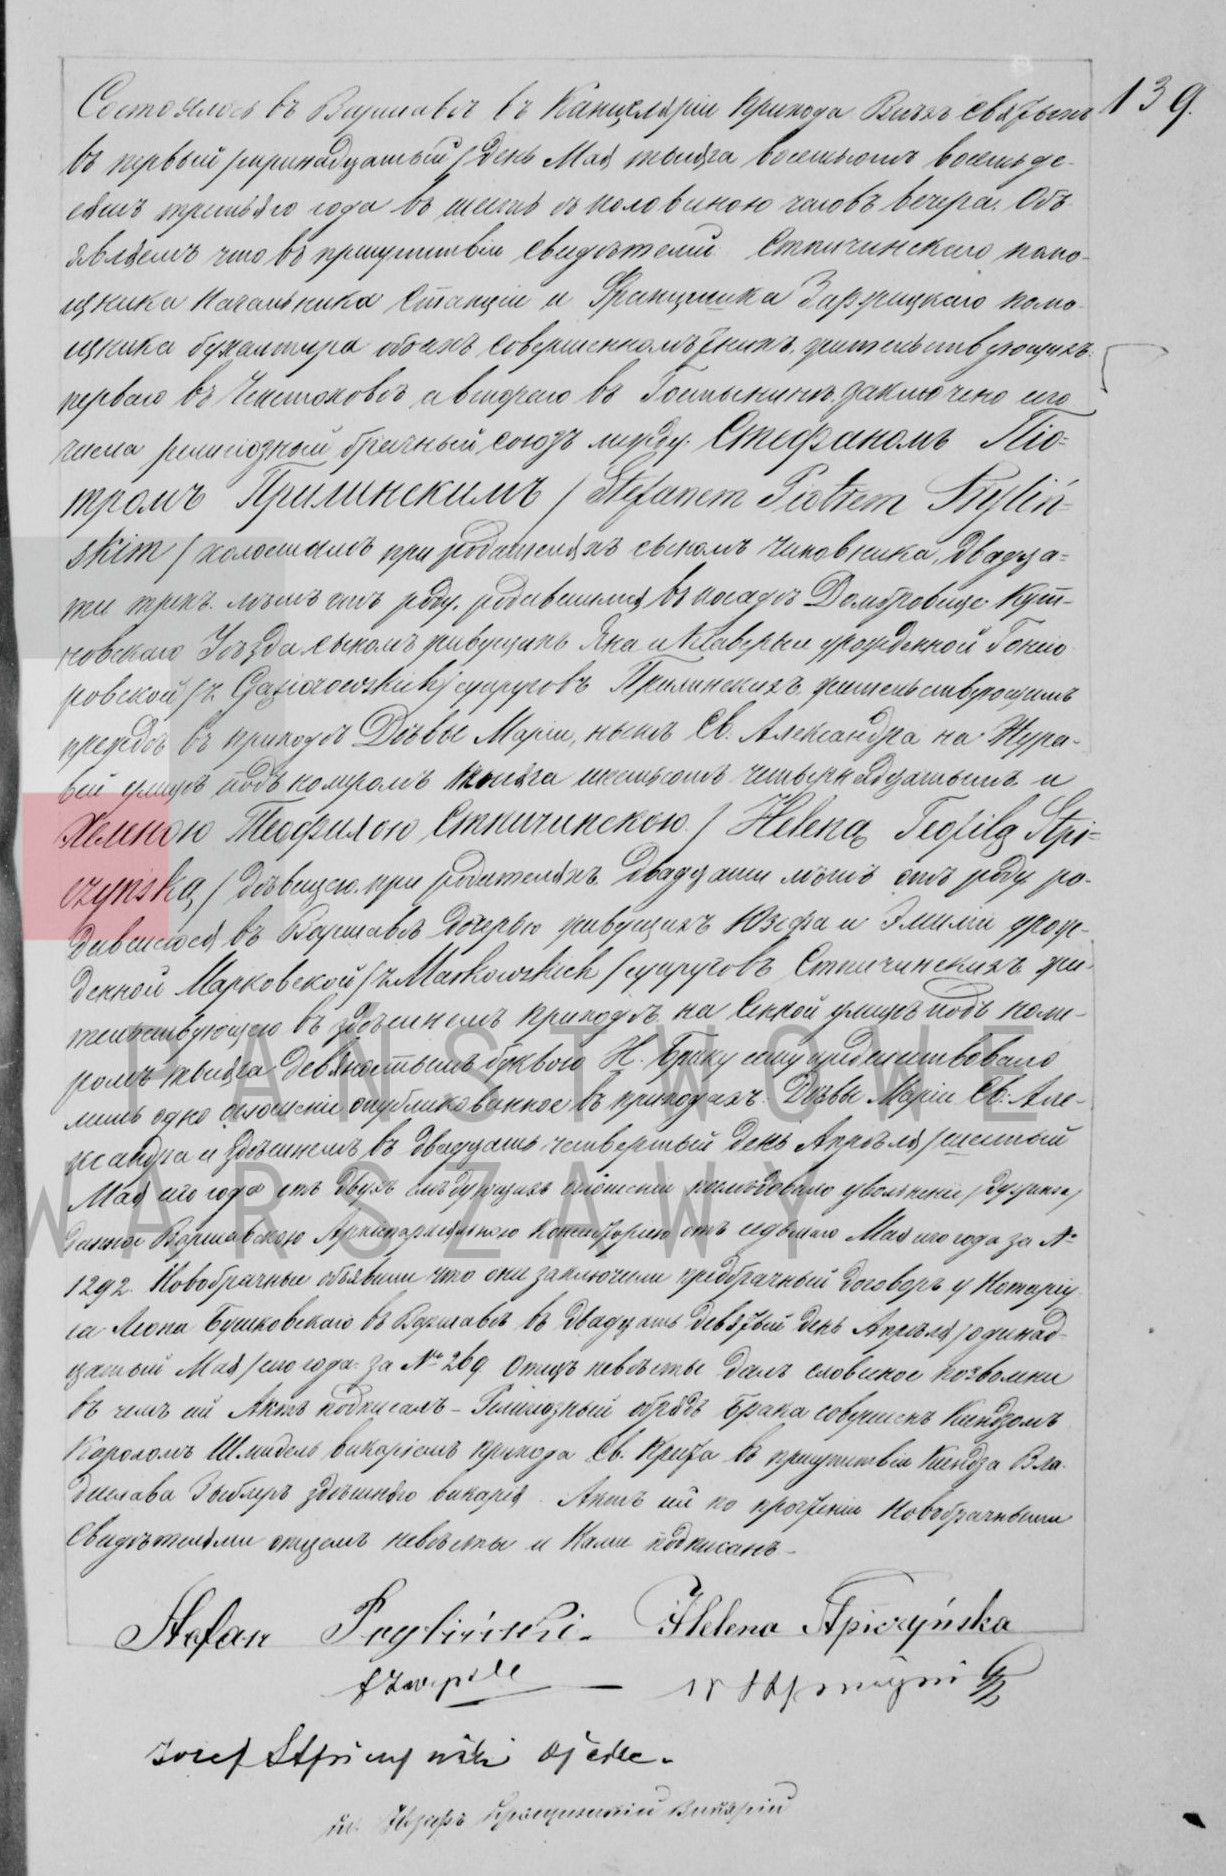 139.
Состоялось въ Варшавѣ въ Канцеляріи прихода Всѣхъ Святыхъ
въ первый /тринадцатый/ день Мая тысяча восемьсотъ восемьде-
сятъ третьяго года въ шесть съ половиною часовъ вечера. Объ-
являемъ что въ присутствіи свидѣтелей Стпичинскаго помо-
щника Начальника Станціи и Францишка помо-
щника бухалтера обоихъ совершеннолѣтнихъ, жительствующихъ
перваго въ Ченстоховѣ а втораго въ Гостынинѣ, заключено сего
числа религіозный брачный союзъ между Стефаномъ Піо-
тромъ Прилинскимъ / Stefanem Piotrem Pryliń-
skim / холостымъ при родителяхъ сыномъ чиновника, двадца-
ти трехъ лѣтъ отъ роду, родившимся въ посадѣ Домбровице Кут-
новскаго Уѣзда сыномъ живущихъ Яна и Ксаверыи урожденной Гонсіо-
ровской / z Gąsiorowskich / супруговъ Прилинскихъ, жительствующимъ
прежде въ приходѣ Дѣвы Маріи, нынѣ Св. Александра на Жура-
вей улицѣ подъ номеромъ тысяча шестьсотъ четырнадцатымъ и
Хеленою Теофилою Стпичинскою / Heleną Teofilą Stpi-
czyńską / дѣвицею при родителяхъ двадцати лѣтъ отъ роду ро-
дившеюся въ Варшавѣ дочерью живущихъ Юзефа и Эмиліи урож-
денной Марковской / z Markowskich / супруговъ Стпичинскихъ жи-
тельствующею въ здѣшнемъ приходѣ на Сенной улицѣ подъ номе-
ромъ тысяча девяностымъ буквою Н. Браку сему предшествовало
лишь одно оглашеніе опубликованное въ приходахъ Дѣвы Маріи, Св. Але-
ксандра и здѣшнемъ въ двадцать четвертый день Апрѣля /шестый
Мая/ сего года отъ двухъ слѣдующихъ оглашеній послѣдовало увольненіе
данное Варшавскою Архіепархіальною Консисторіею отъ седьмаго Мая сего года за №
1292. Новобрачные объявили что они заключили предбрачный договоръ у Нотаріу-
са Леона Бушковскаго въ Варшавѣ въ двадцать девятый день Апрѣля /одинад-
цатый Мая/ сего года за № 269 Отецъ невѣсты далъ словесное позволеніе
въ чемъ сей Актъ подписалъ – Религіозный обрядъ брака совершенъ Ксендзомъ
Каролемъ Шмидель викаріемъ прихода Св. Креста въ присутствіи Ксендза Вла-
дислава здѣшняго викарія. Актъ сей по прочтеніи Новобрачными
Свидѣтелями отцемъ невѣсты и Нами подписанъ –
Stefan Pryliński. Helena Stpiczyńska
Józef Stpiczyński ojciec.
Викарій